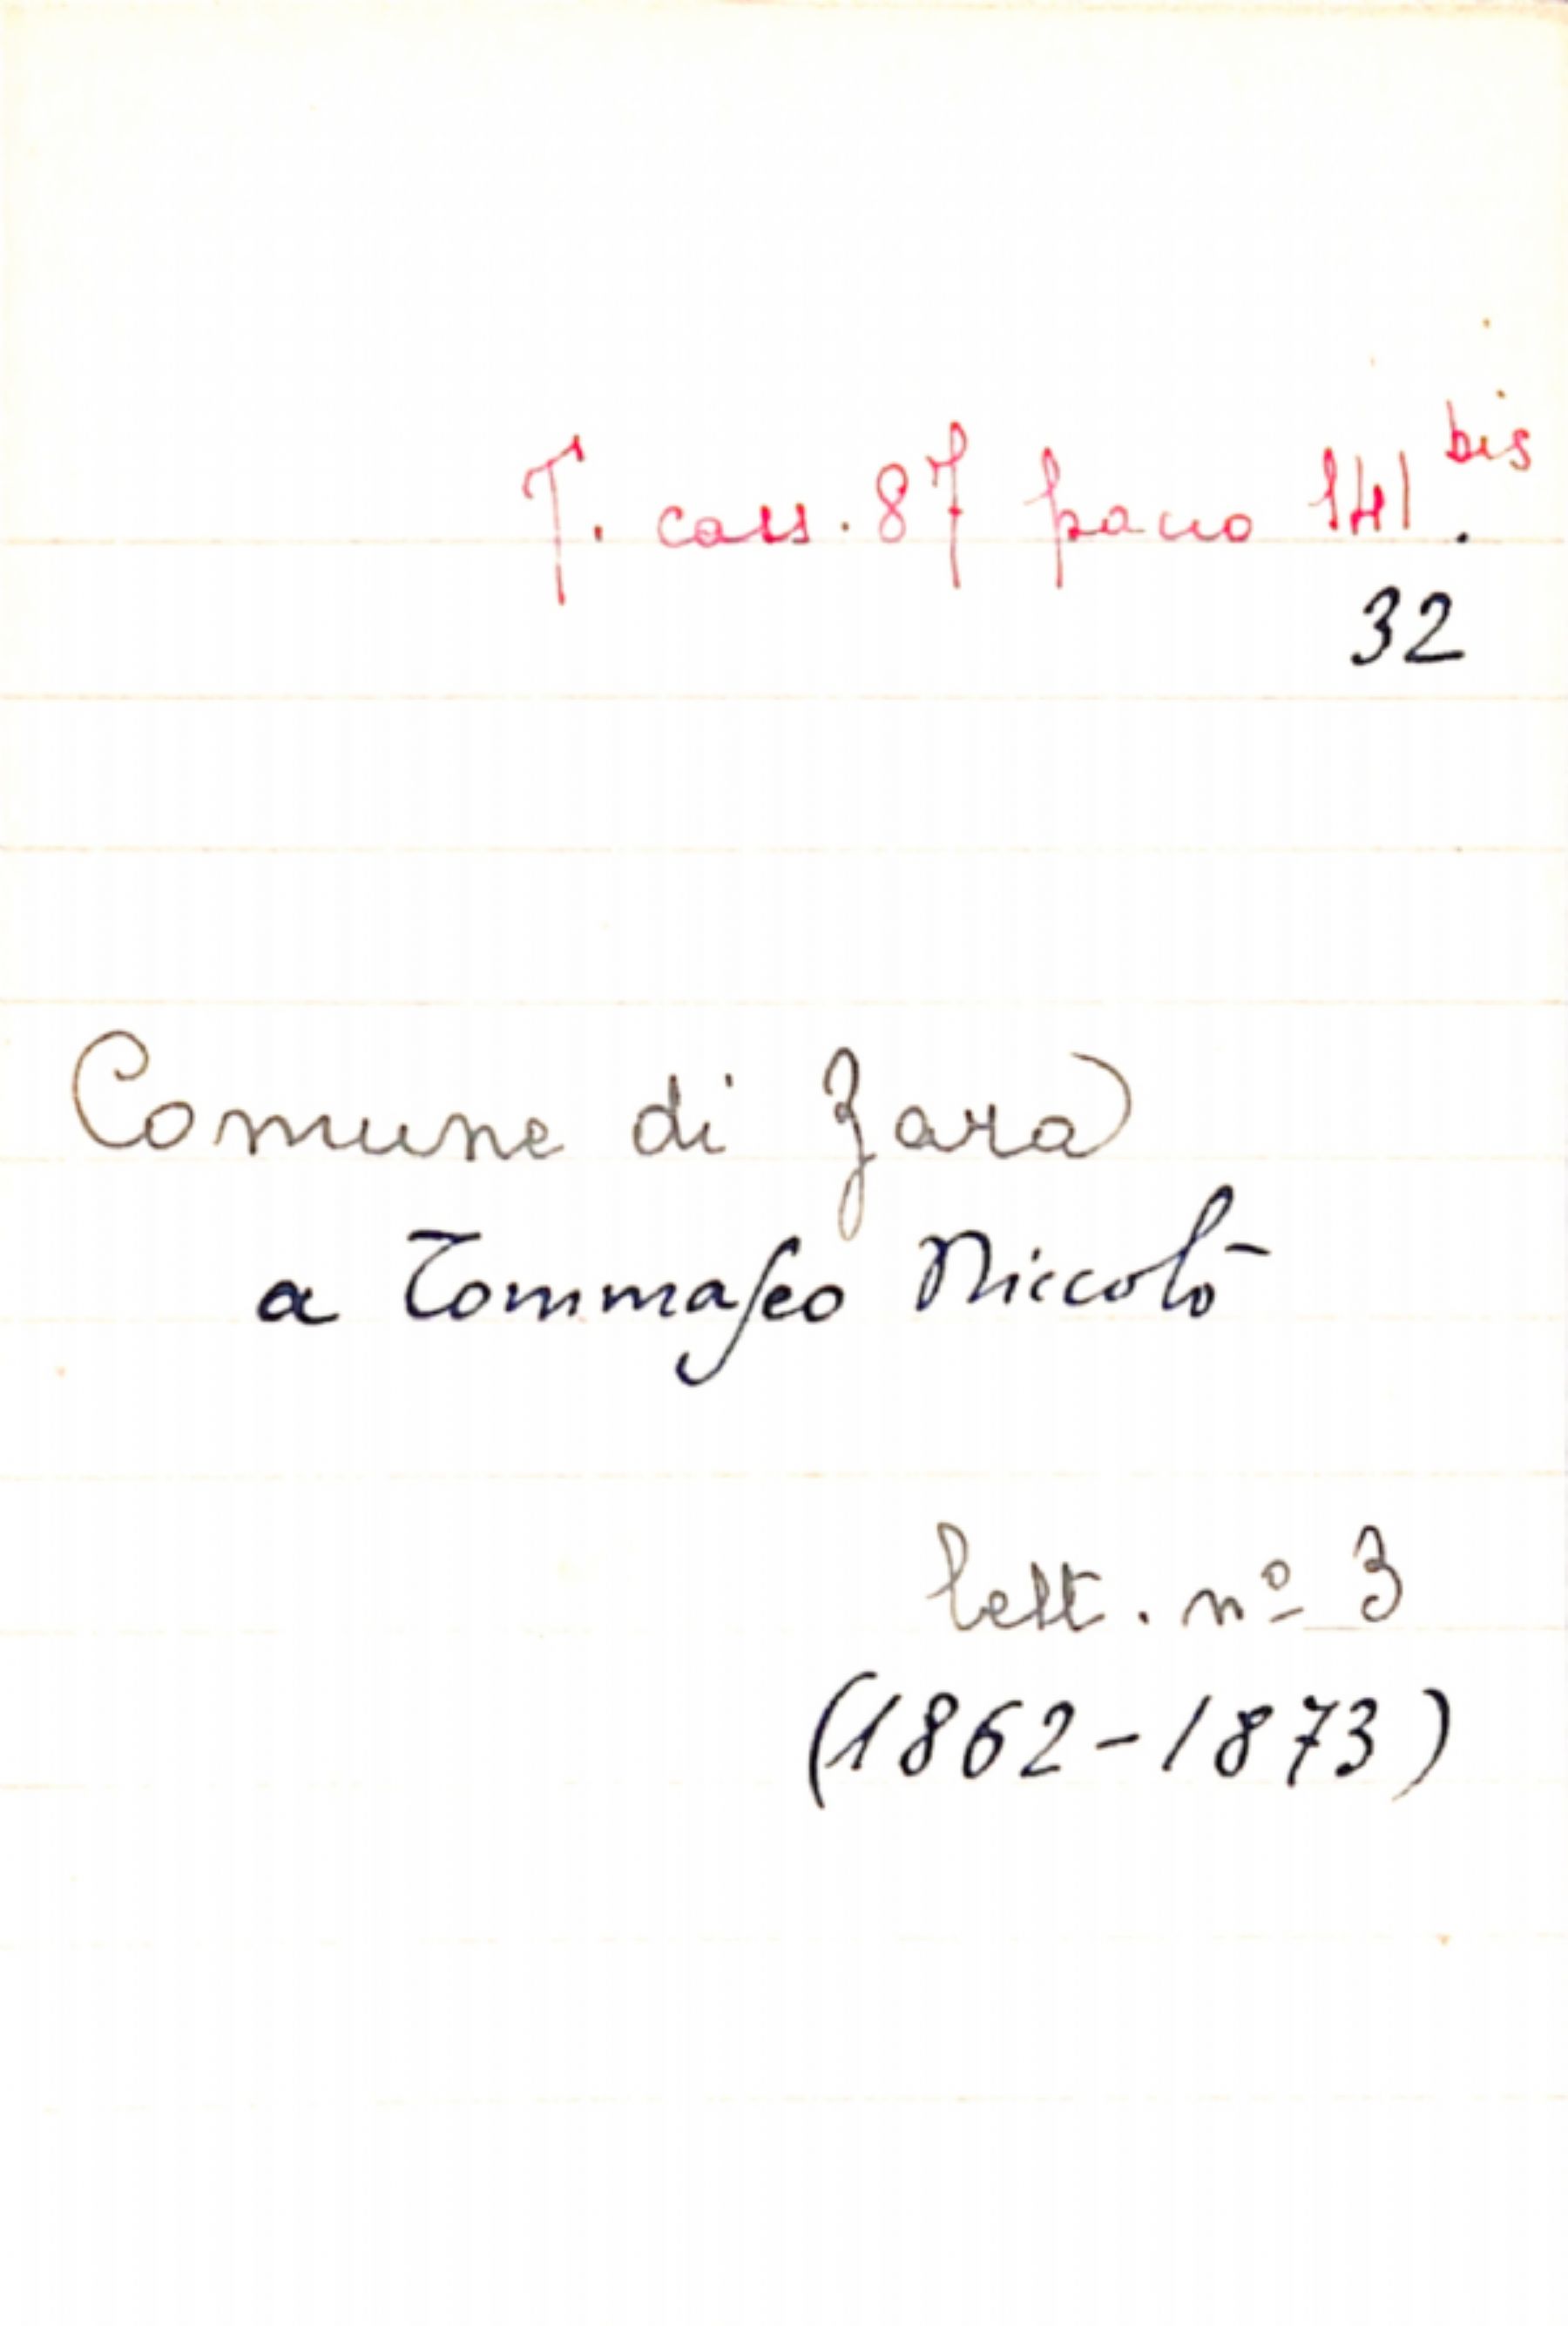 T. cass. 87 pacco 141 bis.
32
Comune di Zara
a Tommaseo Niccolò
lett. nº 3
(1862-1873)